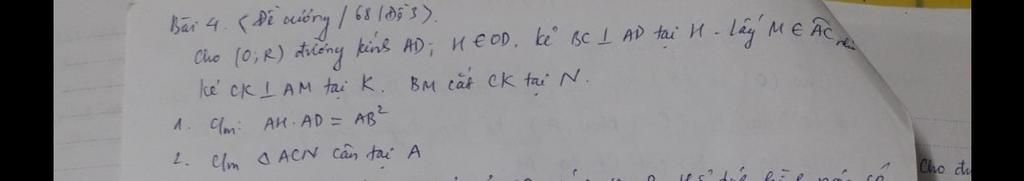 Bài 4. (Đề cương / 68 / Đề 3).
Cho (O; R) đường kính AD; H ∈ OD. kẻ BC ⊥ AD tại H. Lấy M ∈ AC nhỏ
kẻ CK ⊥ AM tại K. BM cắt CK tại N.
1. C/m: AH.AD = AB²
2. C/m Δ ACN cân tại A
Cho đư